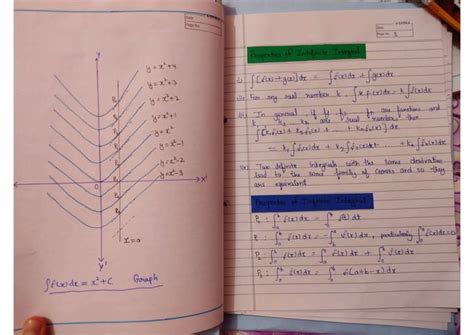 Y
y = x²+4
y = x²+3
y = x²+2
y = x²+1
y = x²
y = x²-1
y = x²-2
y = x²-3
X'
X
0
Y'
∫f(x)dx = x²+C Graph
Date
Page No.
Date
Page No. 3
Properties of Indefinite Integral
∫[f(x)+g(x)]dx = ∫f(x)dx + ∫g(x)dx
For any real number k, ∫k f(x)dx = k∫f(x)dx
In general, if f₁, f₂, are functions and
k₁, k₂, kn are real numbers then
∫[k₁f₁(x) + k₂f₂(x) + ... + knfn(x)]dx
= k₁∫f₁(x)dx + k₂∫f₂(x)dx + ... kn∫fn(x)dx
Two definite integrals with the same derivative
lead to the same family of curves and so they
are equivalent.
Properties of Integral
P₀ : ∫ₐᵇ f(x)dx = ∫ₐᵇ f(t) dt
∫ₐᵇ f(x)dx = - f(x)dx, particularly f(x)dx=0
∫ₐᵇ f(x)dx = f(x)dx + f(x)dx
P₃ : ∫ₐᵇ f(x)dx = ∫ₐᵇ f(a+b-x)dx